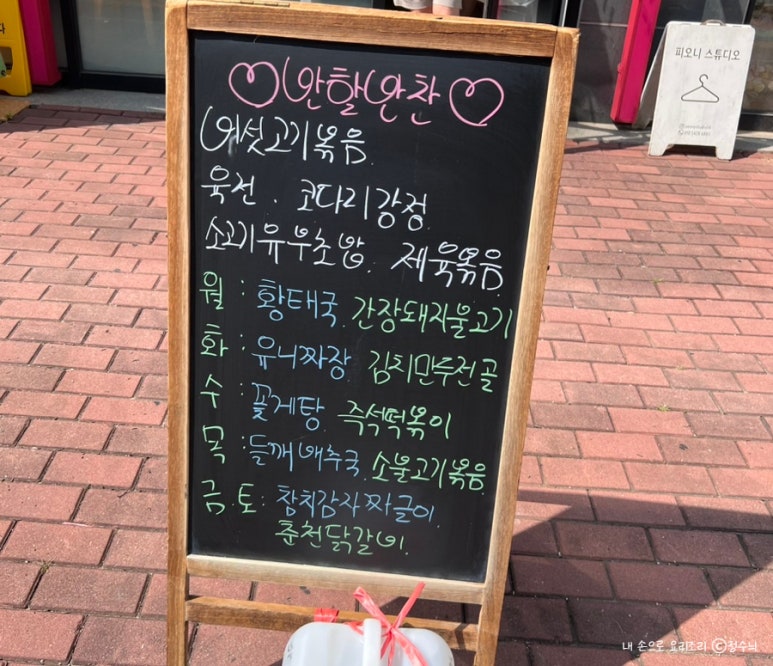 안할안찬
버섯고기볶음.
육전. 코다리강정.
소고기유부초밥. 제육볶음.
월: 황태국. 간장돼지불고기
화: 유니짜장. 김치만두전골
수: 꽃게탕. 즉석떡볶이
목: 들깨배추국. 소불고기볶음.
금.토: 참치감자짜글이.
춘천닭갈비.
피오니 스튜디오
내 손으로 요리조리 ⓒ정수늬